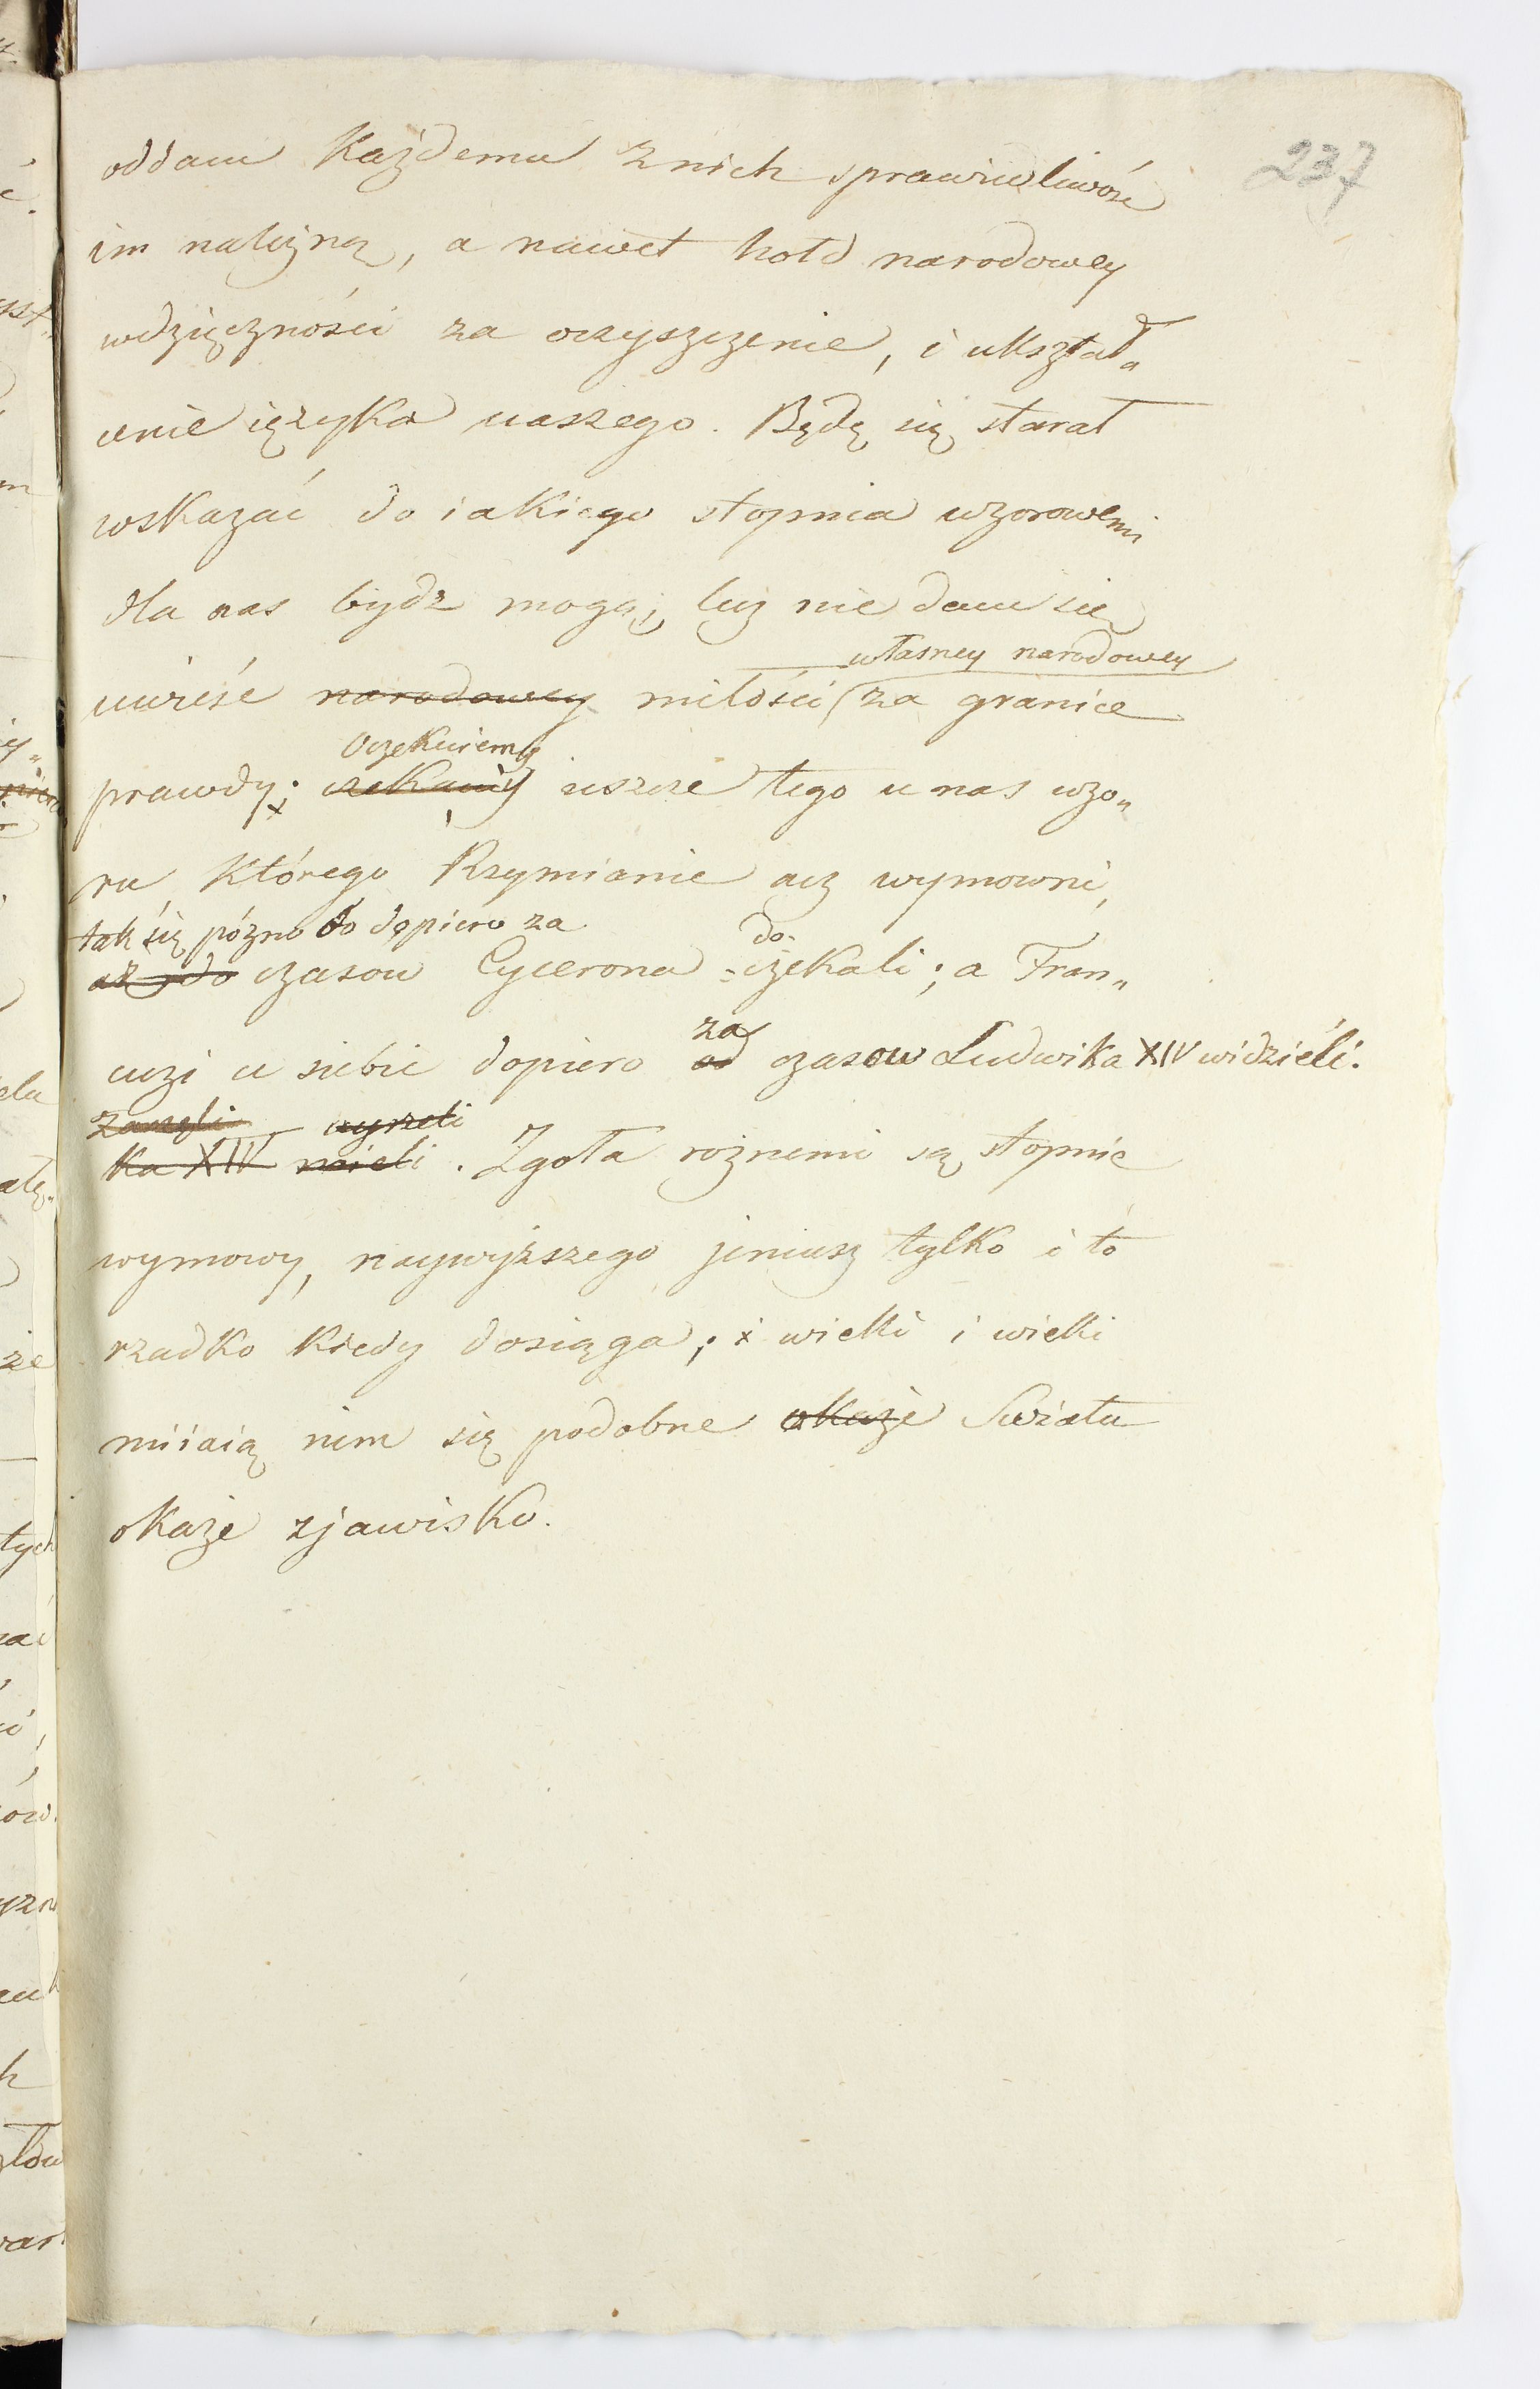 237
oddam każdemu z nich sprawiedliwość
im należną, a nawet hołd narodowey
wdzięczności za oczyszczenie, i ukształ„
cenie ięzyka naszego. Będę się starał
wskazać do iakiego stopnia wzorowemi
dla nas bydz mogą; lecz nie dam się
własney narodowey
unieść narodowey miłości za granice
Oczekuiemy
prawdy; czekamy ieszcze tego u nas wzo„
ru którego Rzymianie acz wymowni,
tak się pózno bo dopiero za do-
aż do czasow Cycerona czekali; a Fran„
za
cuzi u siebie dopiero od czasow Ludwika XIV widzieli.
zaczęli wyrzeli
ka XIV mieli. Zgoła rożnemi są stopnie
wymowy, naywyższego jeniusz tylko i to
rzadko kiedy dosięga; i wieki i wieki
miiaią nim się podobne okaże Swiatu
okaże zjawisko.